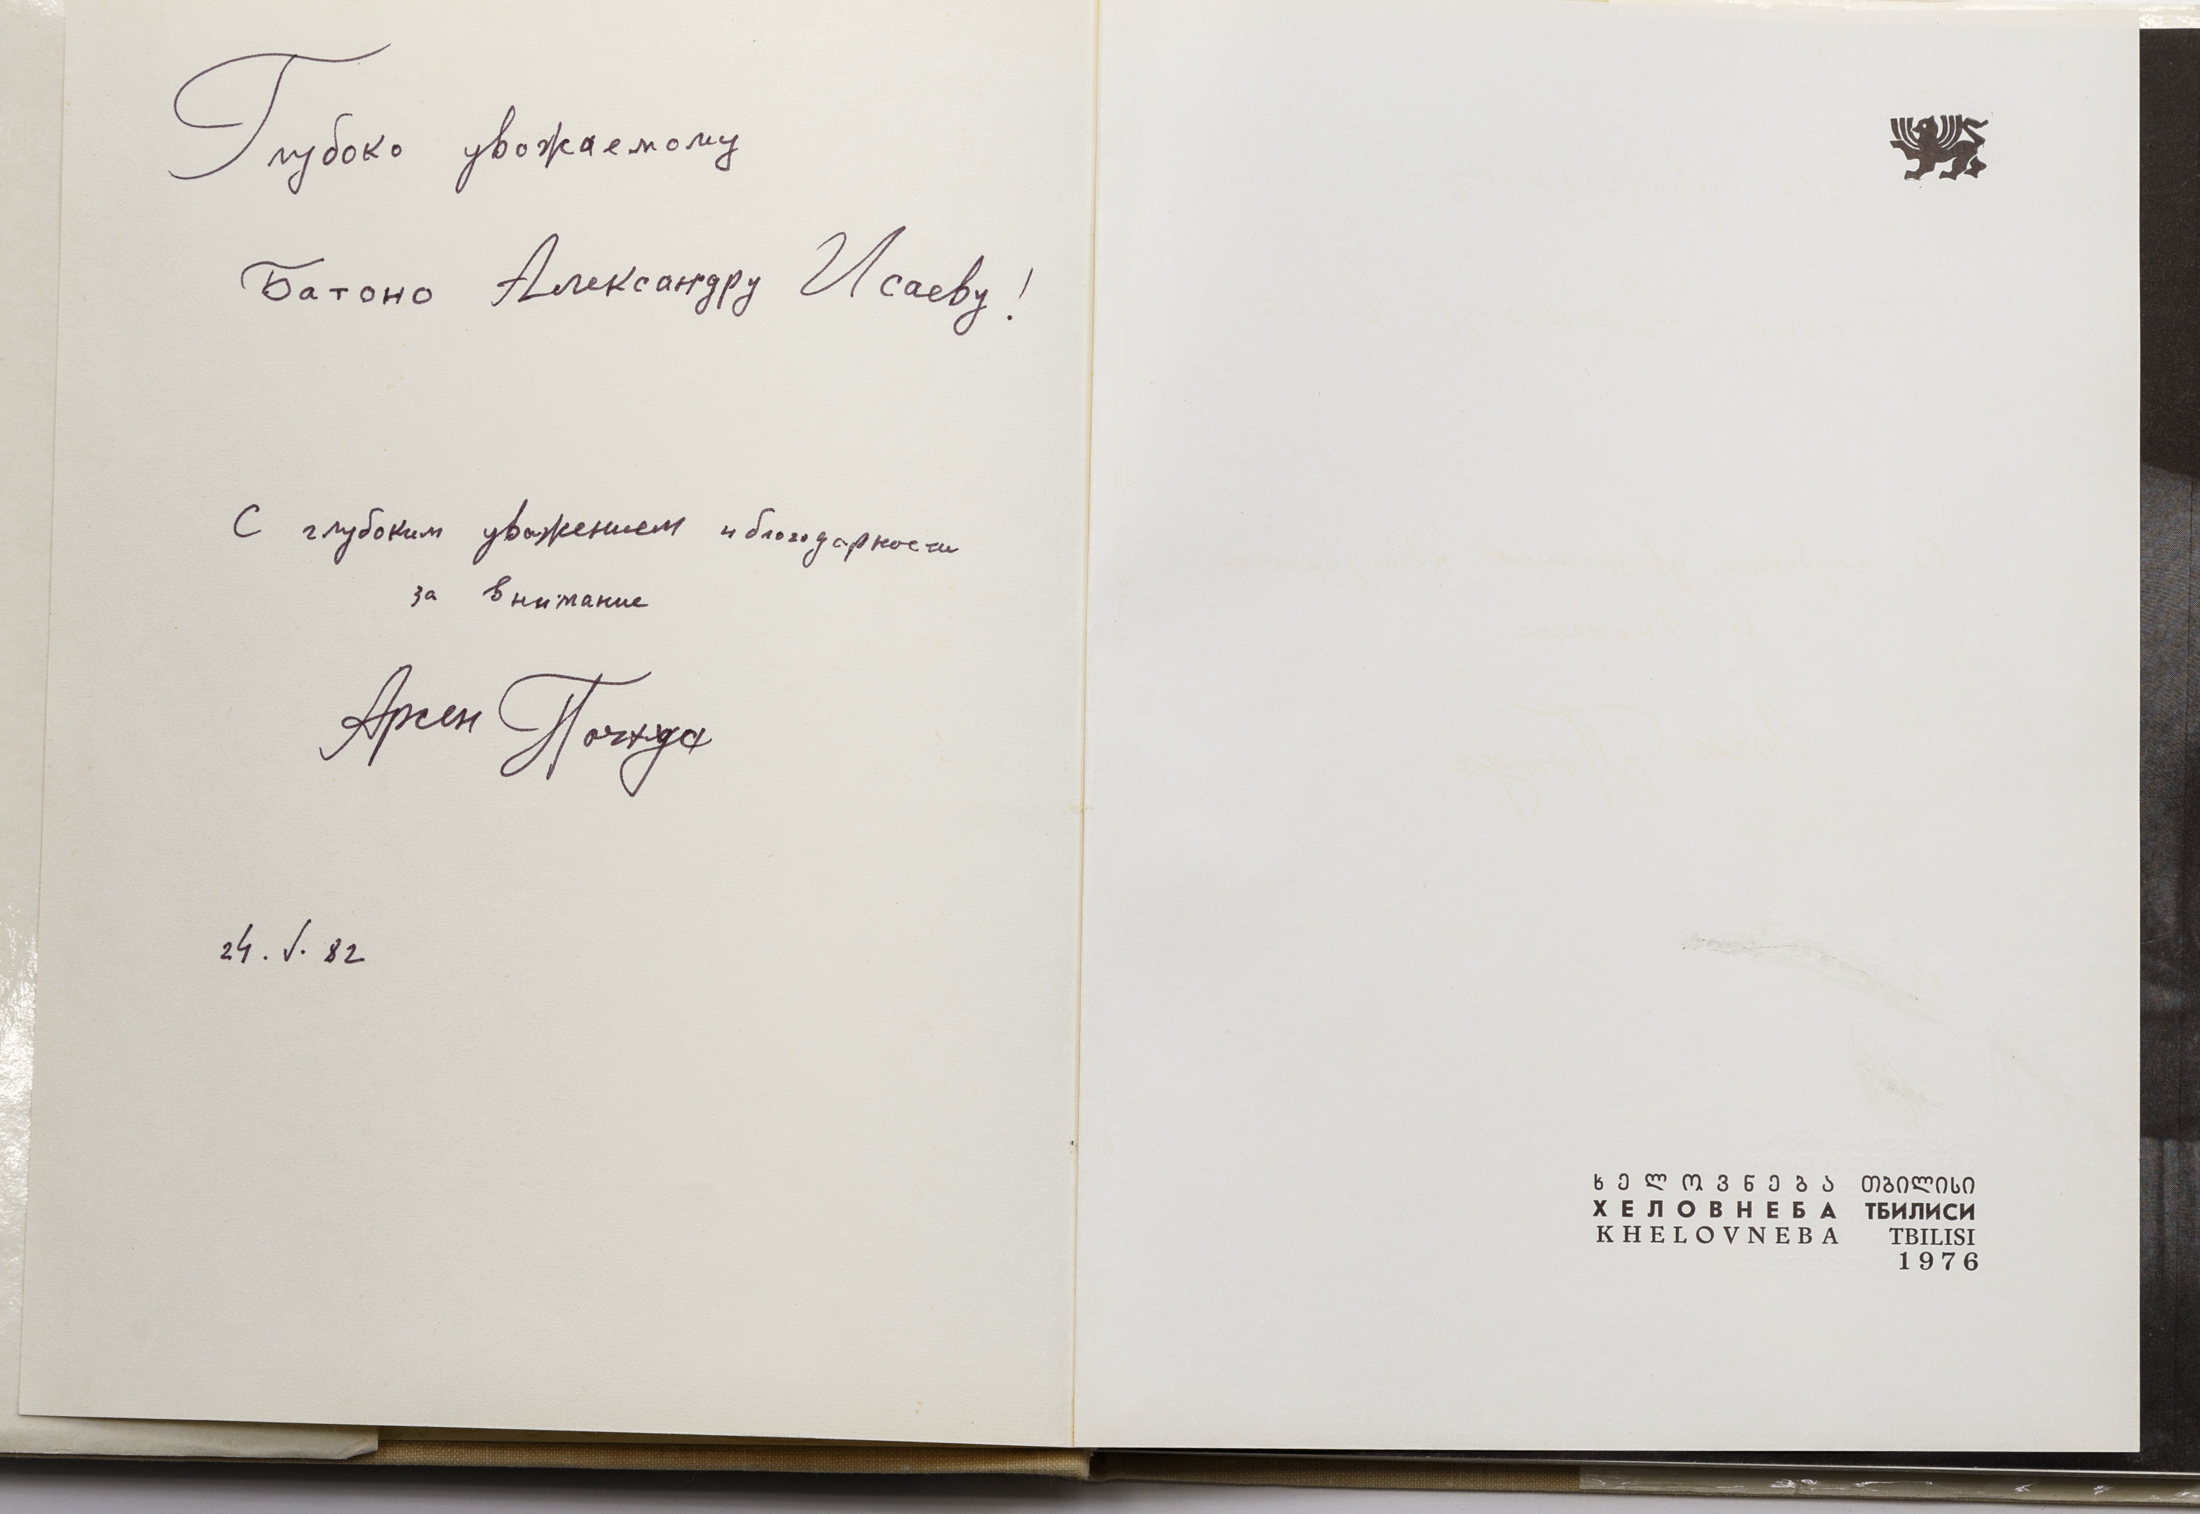 Глубоко уважаемому
Батоно Александру Исаеву!
С глубоким уважением и благодарности
за внимание
Арсен Почхуа
24. V. 82
ხელოვნება თბილისი
ХЕЛОВНЕБА ТБИЛИСИ
KHELOVNEBA TBILISI
1976